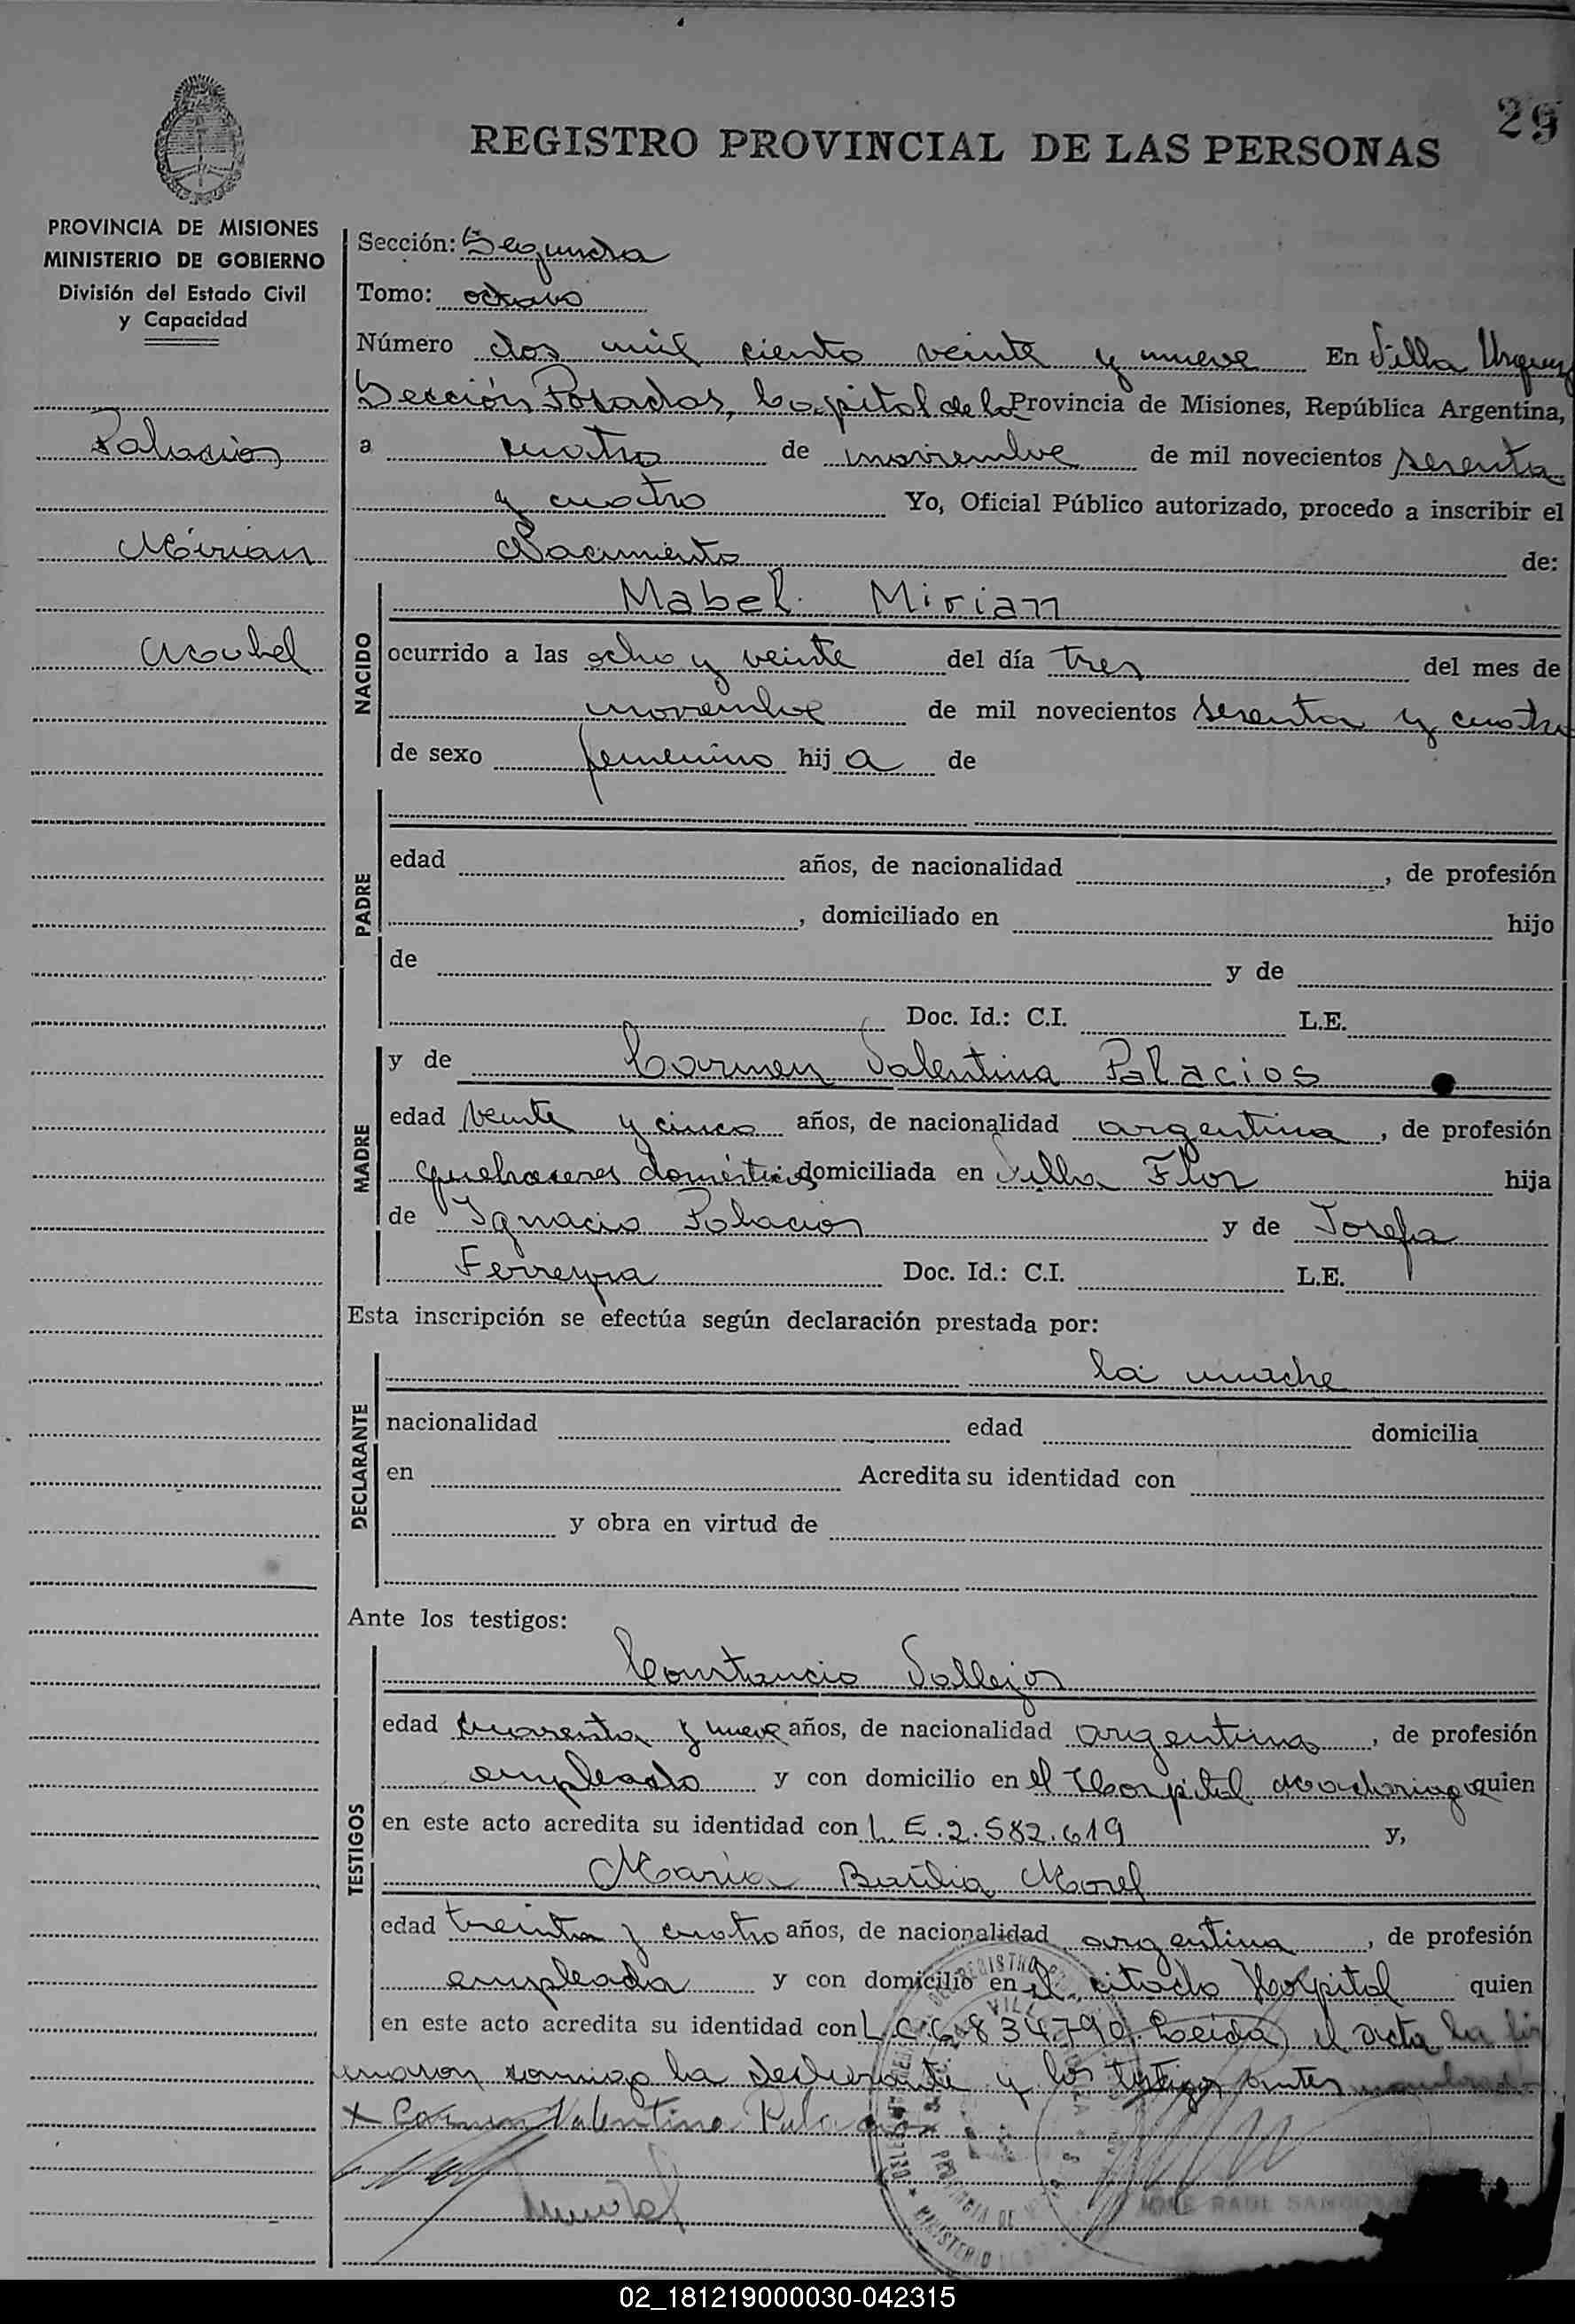 29
REGISTRO PROVINCIAL DE LAS PERSONAS
PROVINCIA DE MISIONES
MINISTERIO DE GOBIERNO
División del Estado Civil
y Capacidad
Palacios
Mirian
Mabel
Sección: Segunda
Tomo: octavo
Número dos mil ciento veinte y nueve En Villa Urquiza
Sección Posadas, Capital de la Provincia de Misiones, República Argentina,
a cuatro de noviembre de mil novecientos sesenta
y cuatro Yo, Oficial Público autorizado, procedo a inscribir el
Nacimiento de:
NACIDO
Mabel Mirian
ocurrido a las ocho y veinte del día tres del mes de
noviembre de mil novecientos sesenta y cuatro
de sexo femenino hij a de
PADRE
edad años, de nacionalidad , de profesión
, domiciliado en hijo
de y de
Doc. Id.: C.I. L.E.
MADRE
y de Carmen Valentina Palacios
edad veinte y cinco años, de nacionalidad argentina , de profesión
quehaceres domésticos domiciliada en Villa Flor hija
de Ignacio Palacios y de Josefa
Ferreyra Doc. Id.: C.I. L.E.
Esta inscripción se efectúa según declaración prestada por:
DECLARANTE
la madre
nacionalidad edad domicilia
en Acredita su identidad con
y obra en virtud de
Ante los testigos:
TESTIGOS
Constancio Vallejos
edad cuarenta y nueve años, de nacionalidad argentina , de profesión
empleado y con domicilio en el Hospital Madariaga quien
en este acto acredita su identidad con L.E. 2.582.619 y,
María Basilia Morel
edad treinta y cuatro años, de nacionalidad argentina , de profesión
empleada y con domicilio en el citado Hospital quien
en este acto acredita su identidad con L.C. 6.834.790. Leida el acta la fir
maron conmigo la declarante y los testigos antes nombrados
x Carmen Valentina Palacios
JOSE RAUL
02_181219000030-042315